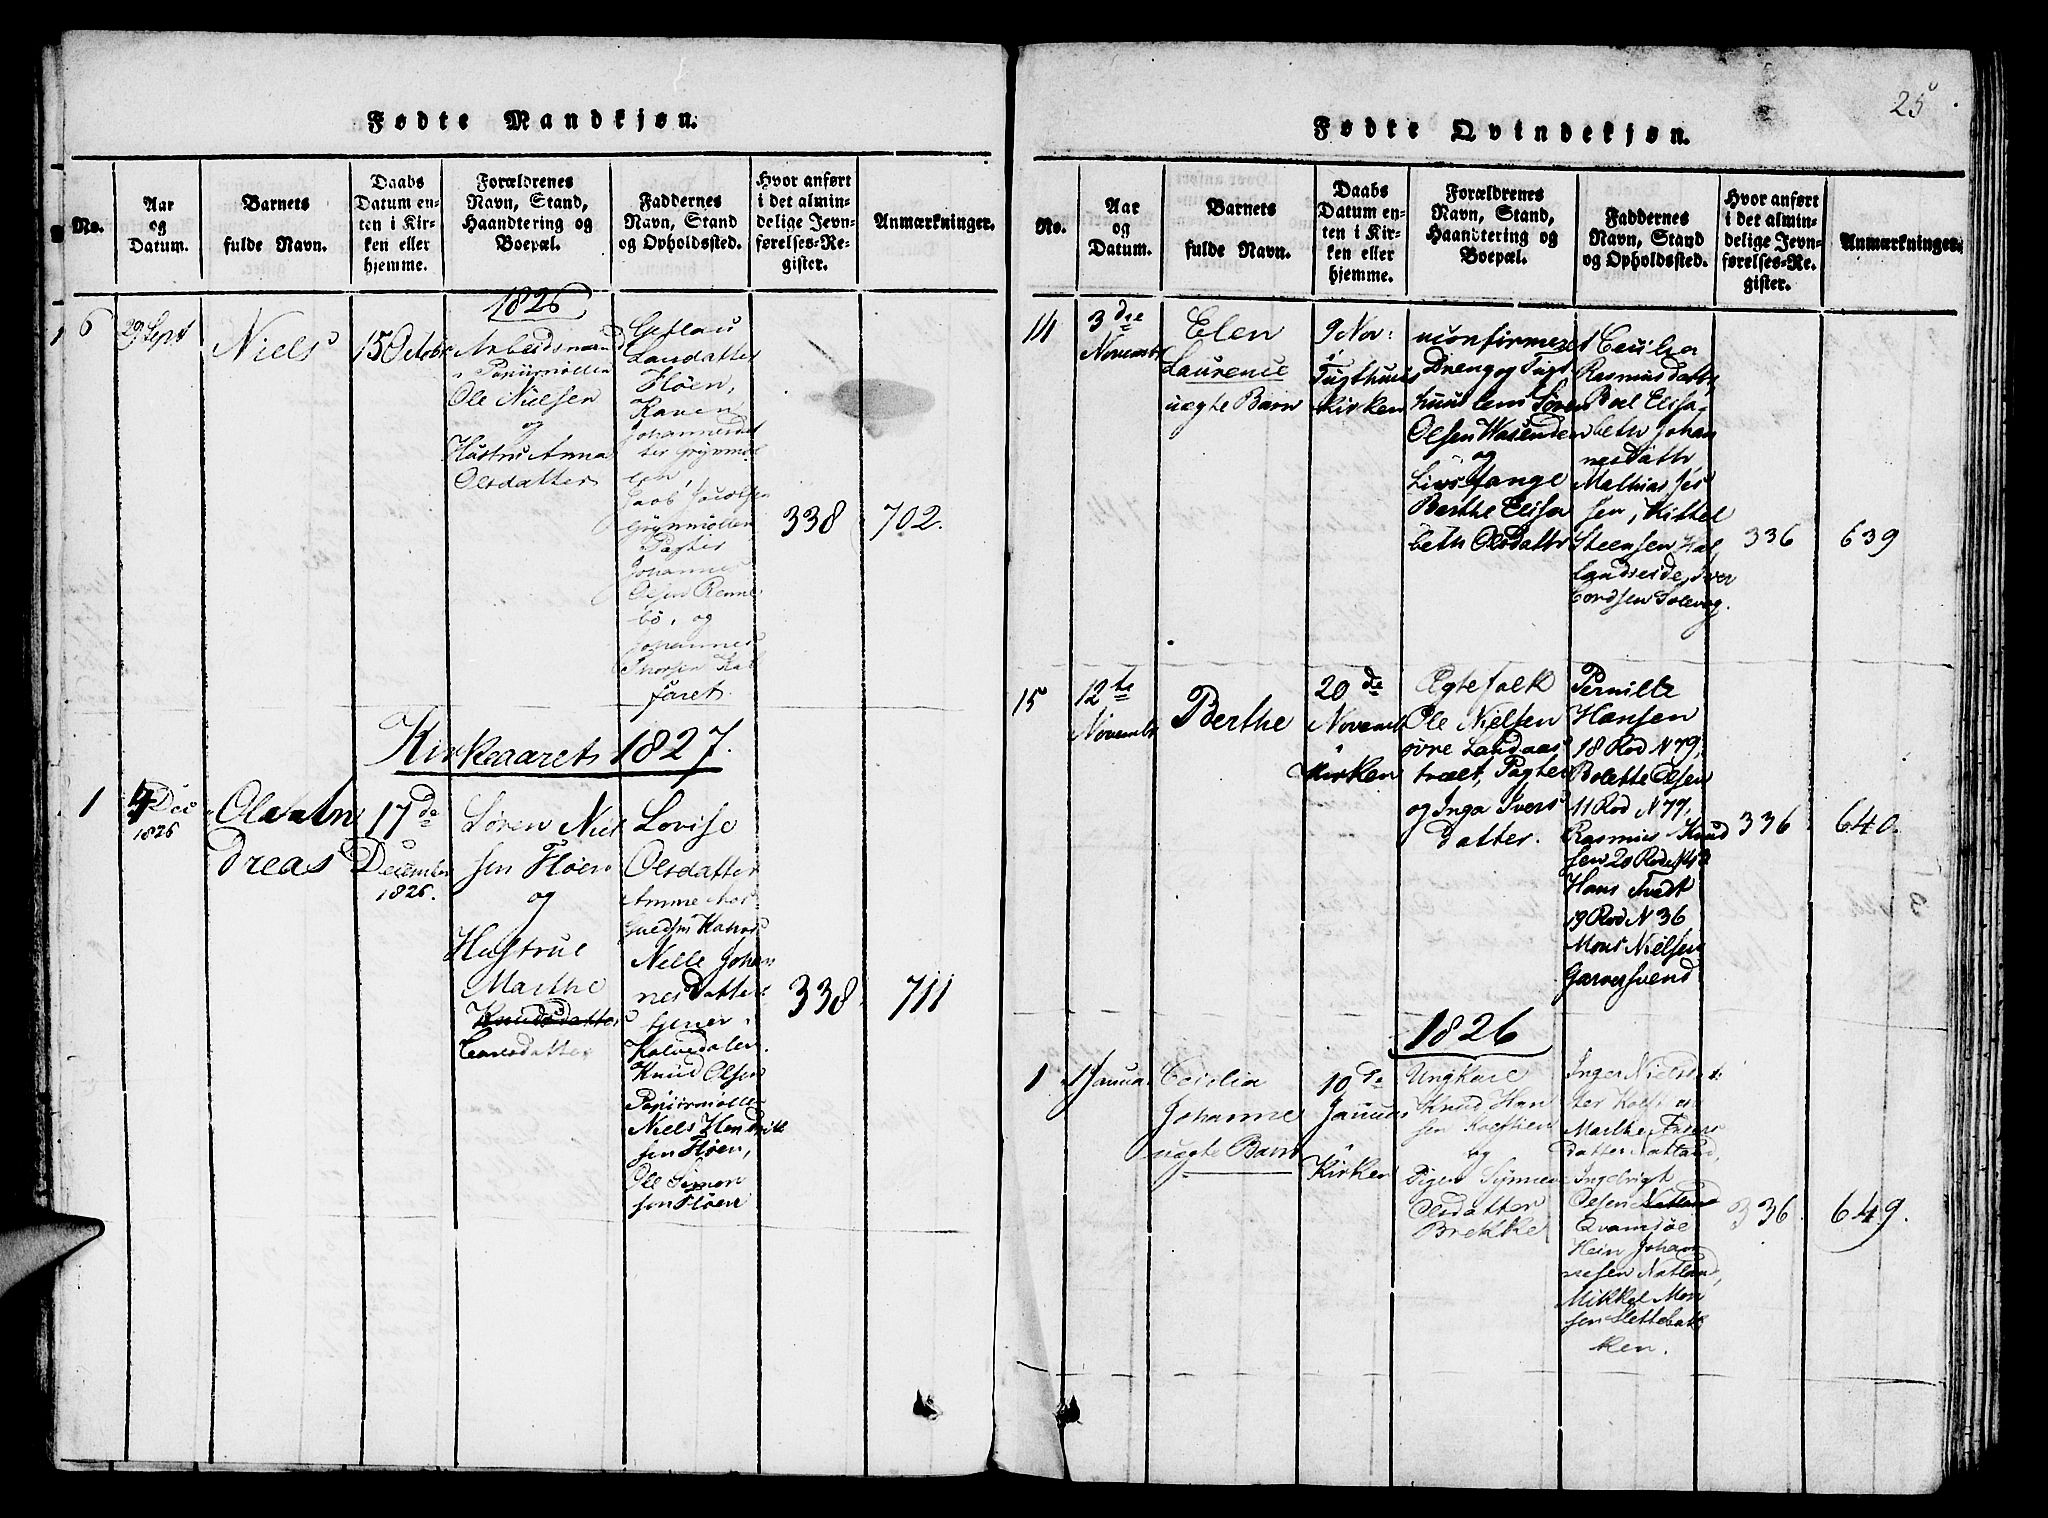 Fødte Mandkjøn.
No.
Aar
og
Datum.
Barnets
fulde Navn.
Daabs
Datum en-
ten i Kir-
ken eller
hjemme.
Forældrenes
Navn, Stand,
Haandtering og
Boepæl.
Faddernes
Navn, Stand
og Opholdssted.
Hvor anført
i det almin-
delige Jevn-
førelses-Re-
gister.
Anmærkninger.
1826
6
29 Sept
Niels
15 Octobr
Arbeidsmand
Papiirmøllen
Ole Nielsen
og
Hustru Anna
Olsdatter
Larsdatter
Fløen,
Karen
Johannesdat
ter Grynmøl
len,
Jacob Jacobsen
Grynmøllen
Pagter
Johannes
Olsen Renne
bø, og
Johannes
Thorsen Kal
faret.
338
702.
Kirkeaarets 1827.
1
4 Dec
1826
Ole An
dreas
17 de
December
1826.
Søren Niel
sen Fløen
og
Hustrue
Marthe
Knudsdatter
Larsdatter
Lovise
Olsdatter
Amme hos
Nelle Johan
nesdatter
tjener
Kalvedalen
Knud Olsen
Papiirmøllen
Niels Hendrik
sen Fløen,
Ole Simon
sen Fløen
338
711
25
Fødte Qvindekjøn.
No.
Aar
og
Datum.
Barnets
fulde Navn.
Daabs
Datum en-
ten i Kir-
ken eller
hjemme.
Forældrenes
Navn, Stand,
Haandtering og
Boepæl.
Faddernes
Navn, Stand
og Opholdssted.
Hvor anført
i det almin-
delige Jevn-
førelses-Re-
gister.
Anmærkninger.
14
3 die
Novembr
Elen
Laurence
uægte Barn
9 Nov:
i
Tugthuus
Kirken
uconfirmeret
Dreng og Tugt
huuslem Søren
Olsen Wasenden
og
Livsfange
Berthe Elisa
beth Olsdattr
Cecilia
Rasmusdattr,
Boel Elisa
beth Johan
nesdattr
Mathias Jes
sen, Kittel
Steensen Hal
landseide, Iver
Cordsen Solevog.
336
639
15
12 te
Novembr
Berthe
20 de
Novembr
i
Kirken
Ægtefolk
Ole Nielsen
øvre Landaas
træet, Pagter
og Inga Ivers
datter.
Pernille
Hansen
18 Rod N 79,
Bolette Olsen
11 Rod N 77,
Rasmus Knud
sen 20 Rode N 42
Hans Tvedt
19 Rod N 36
Mons Nielsen
Garversvend
336
640.
1826
1
1 Januar
Cecilia
Johanne
uægte Barn
10 de
Januar
i
Kirken
Ungkarl
Knud Han
sen Kolstien
og
Pigen Synneve
Olsdatter
Brekke
Inger Nielsdat
ter Kolstien
Marthe Ivers
datter Natland,
Ingebrigt
Olsen Natland
Qvamsøe
Hein Johan
nesen Natland,
Mikkel Mon
sen Slettebak
ken.
336
649.